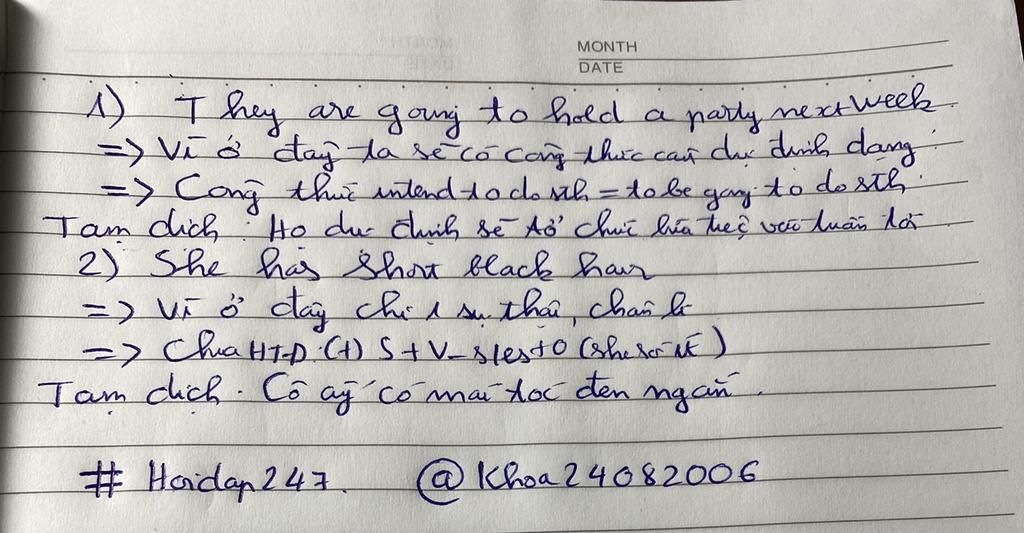 MONTH
DATE
1) They are going to hold a party next week.
=> Vì ở đây ta sẽ có công thức câu dự định dạng:
=> Công thức intend to do sth = to be going to do sth.
Tạm dịch: Họ dự định sẽ tổ chức bữa tiệc vào tuần tới
2) She has short black hair
=> Vì ở đây chỉ 1 sự thật, chân lí
=> Chia HTĐ: (+) S + V_s/es + O (she số ít)
Tạm dịch: Cô ấy có mái tóc đen ngắn.
# Hoidap247. @Khoa24082006